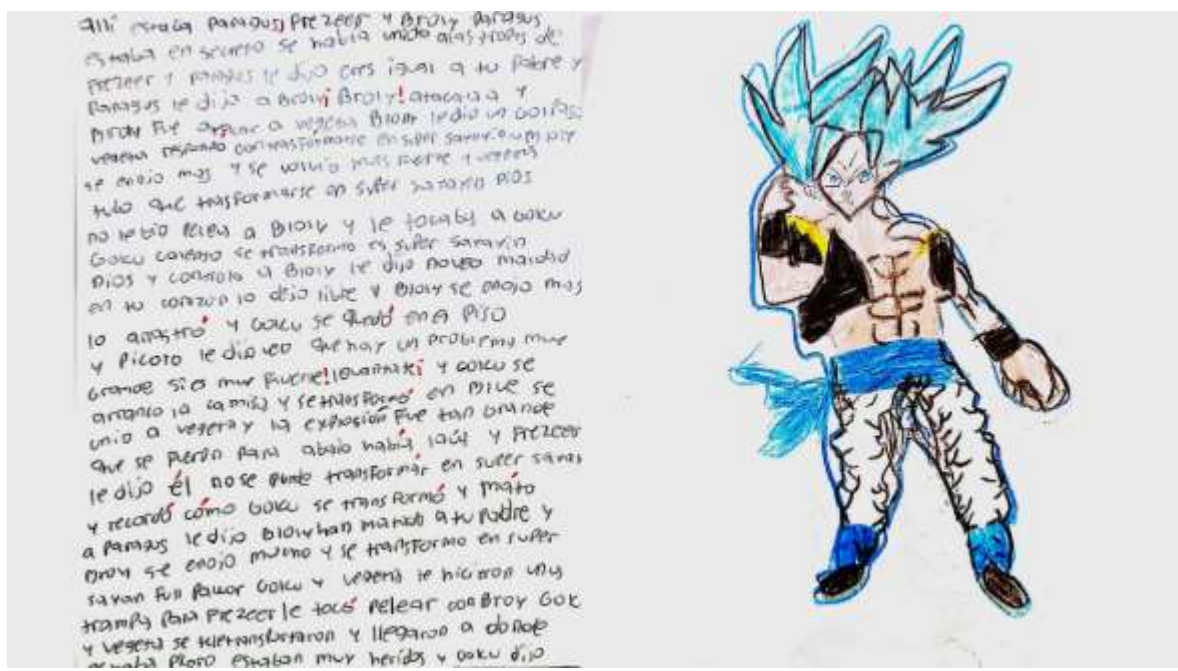 allí estaba paragus, Frezeer y Broly Paragus
estaba en secreto se había unido a las tropas de
Frezeer y paragus le dijo eres igual a tu Padre y
Paragus le dijo a Broly Broly! ataca y
Broly fue a vegeta Broly le dio un
vegeta
se enojo mas y se volvio mas fuerte y vegeta
tubo que trasformarse en super sayayin Dios
no le dio pelea a Broly y le tocaba a Goku
Goku se transformo es super sayayin
Dios y controlo a Broly le dijo no veo maldad
en tu corazon lo dejo libre y Broly se enojo mas
lo arrastró y Goku se quedó en el piso
y Picoro le dijo veo que hay un problema muy
grande si es muy fuerte! y Goku se
arranco la camisa y se transformó en Blue se
unio a vegeta y la explosión fue tan grande
que se fueron para abajo había y Frezeer
le dijo él no se puede transformar en super
y recordó cómo Goku se transformó y mato
a Paragus le dijo Broly han matado a tu Padre y
Broly se enojo mucho y se transformo en super
sayan Full Pawor Goku y vegeta le hicieron una
trampa para Frezeer le tocó pelear con Broy Gok
y vegeta se teletransportaron y llegaron a donde
estaba Picoro estaban muy heridos y Goku dijo